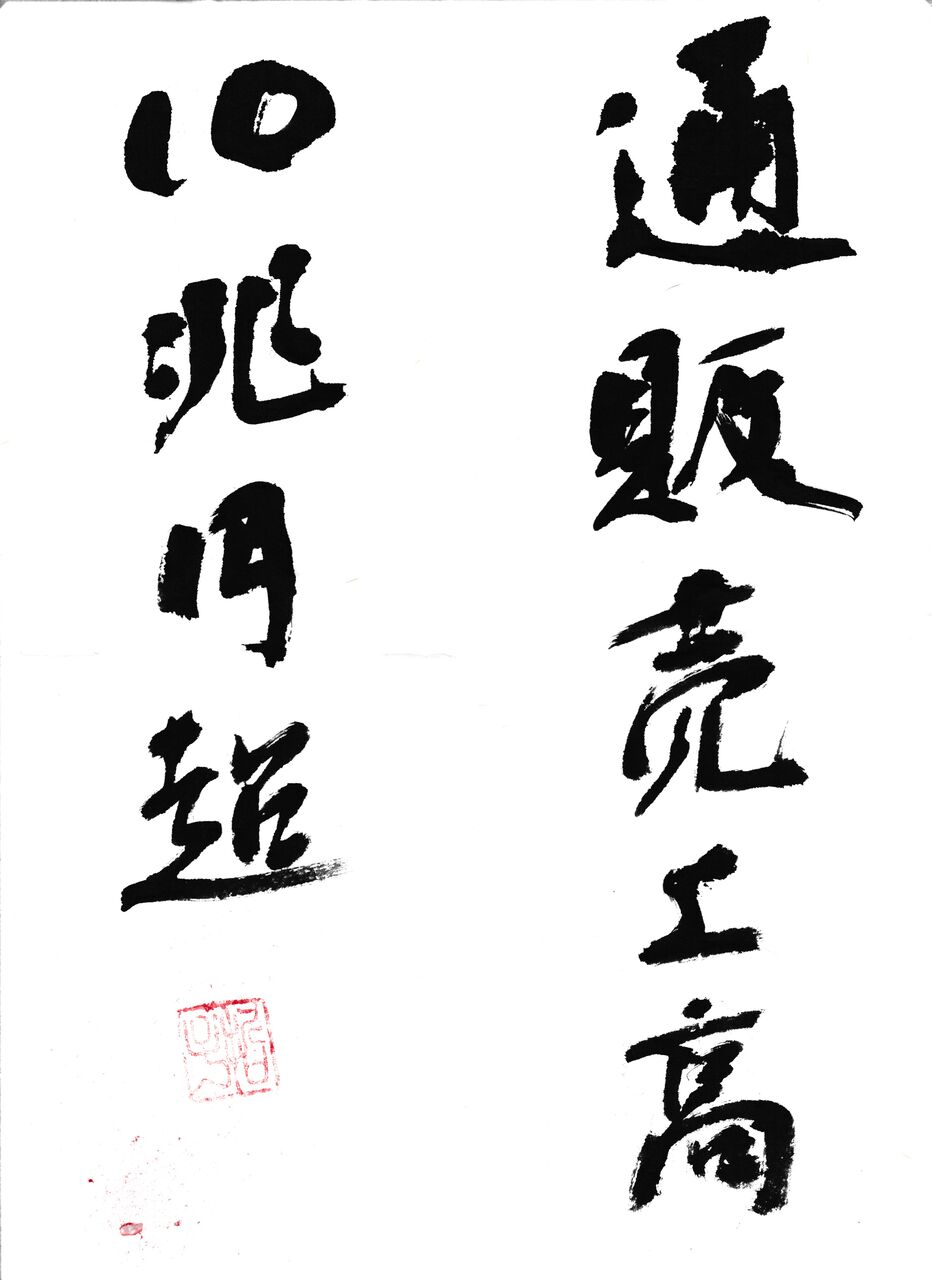 通販売上高
10兆円超